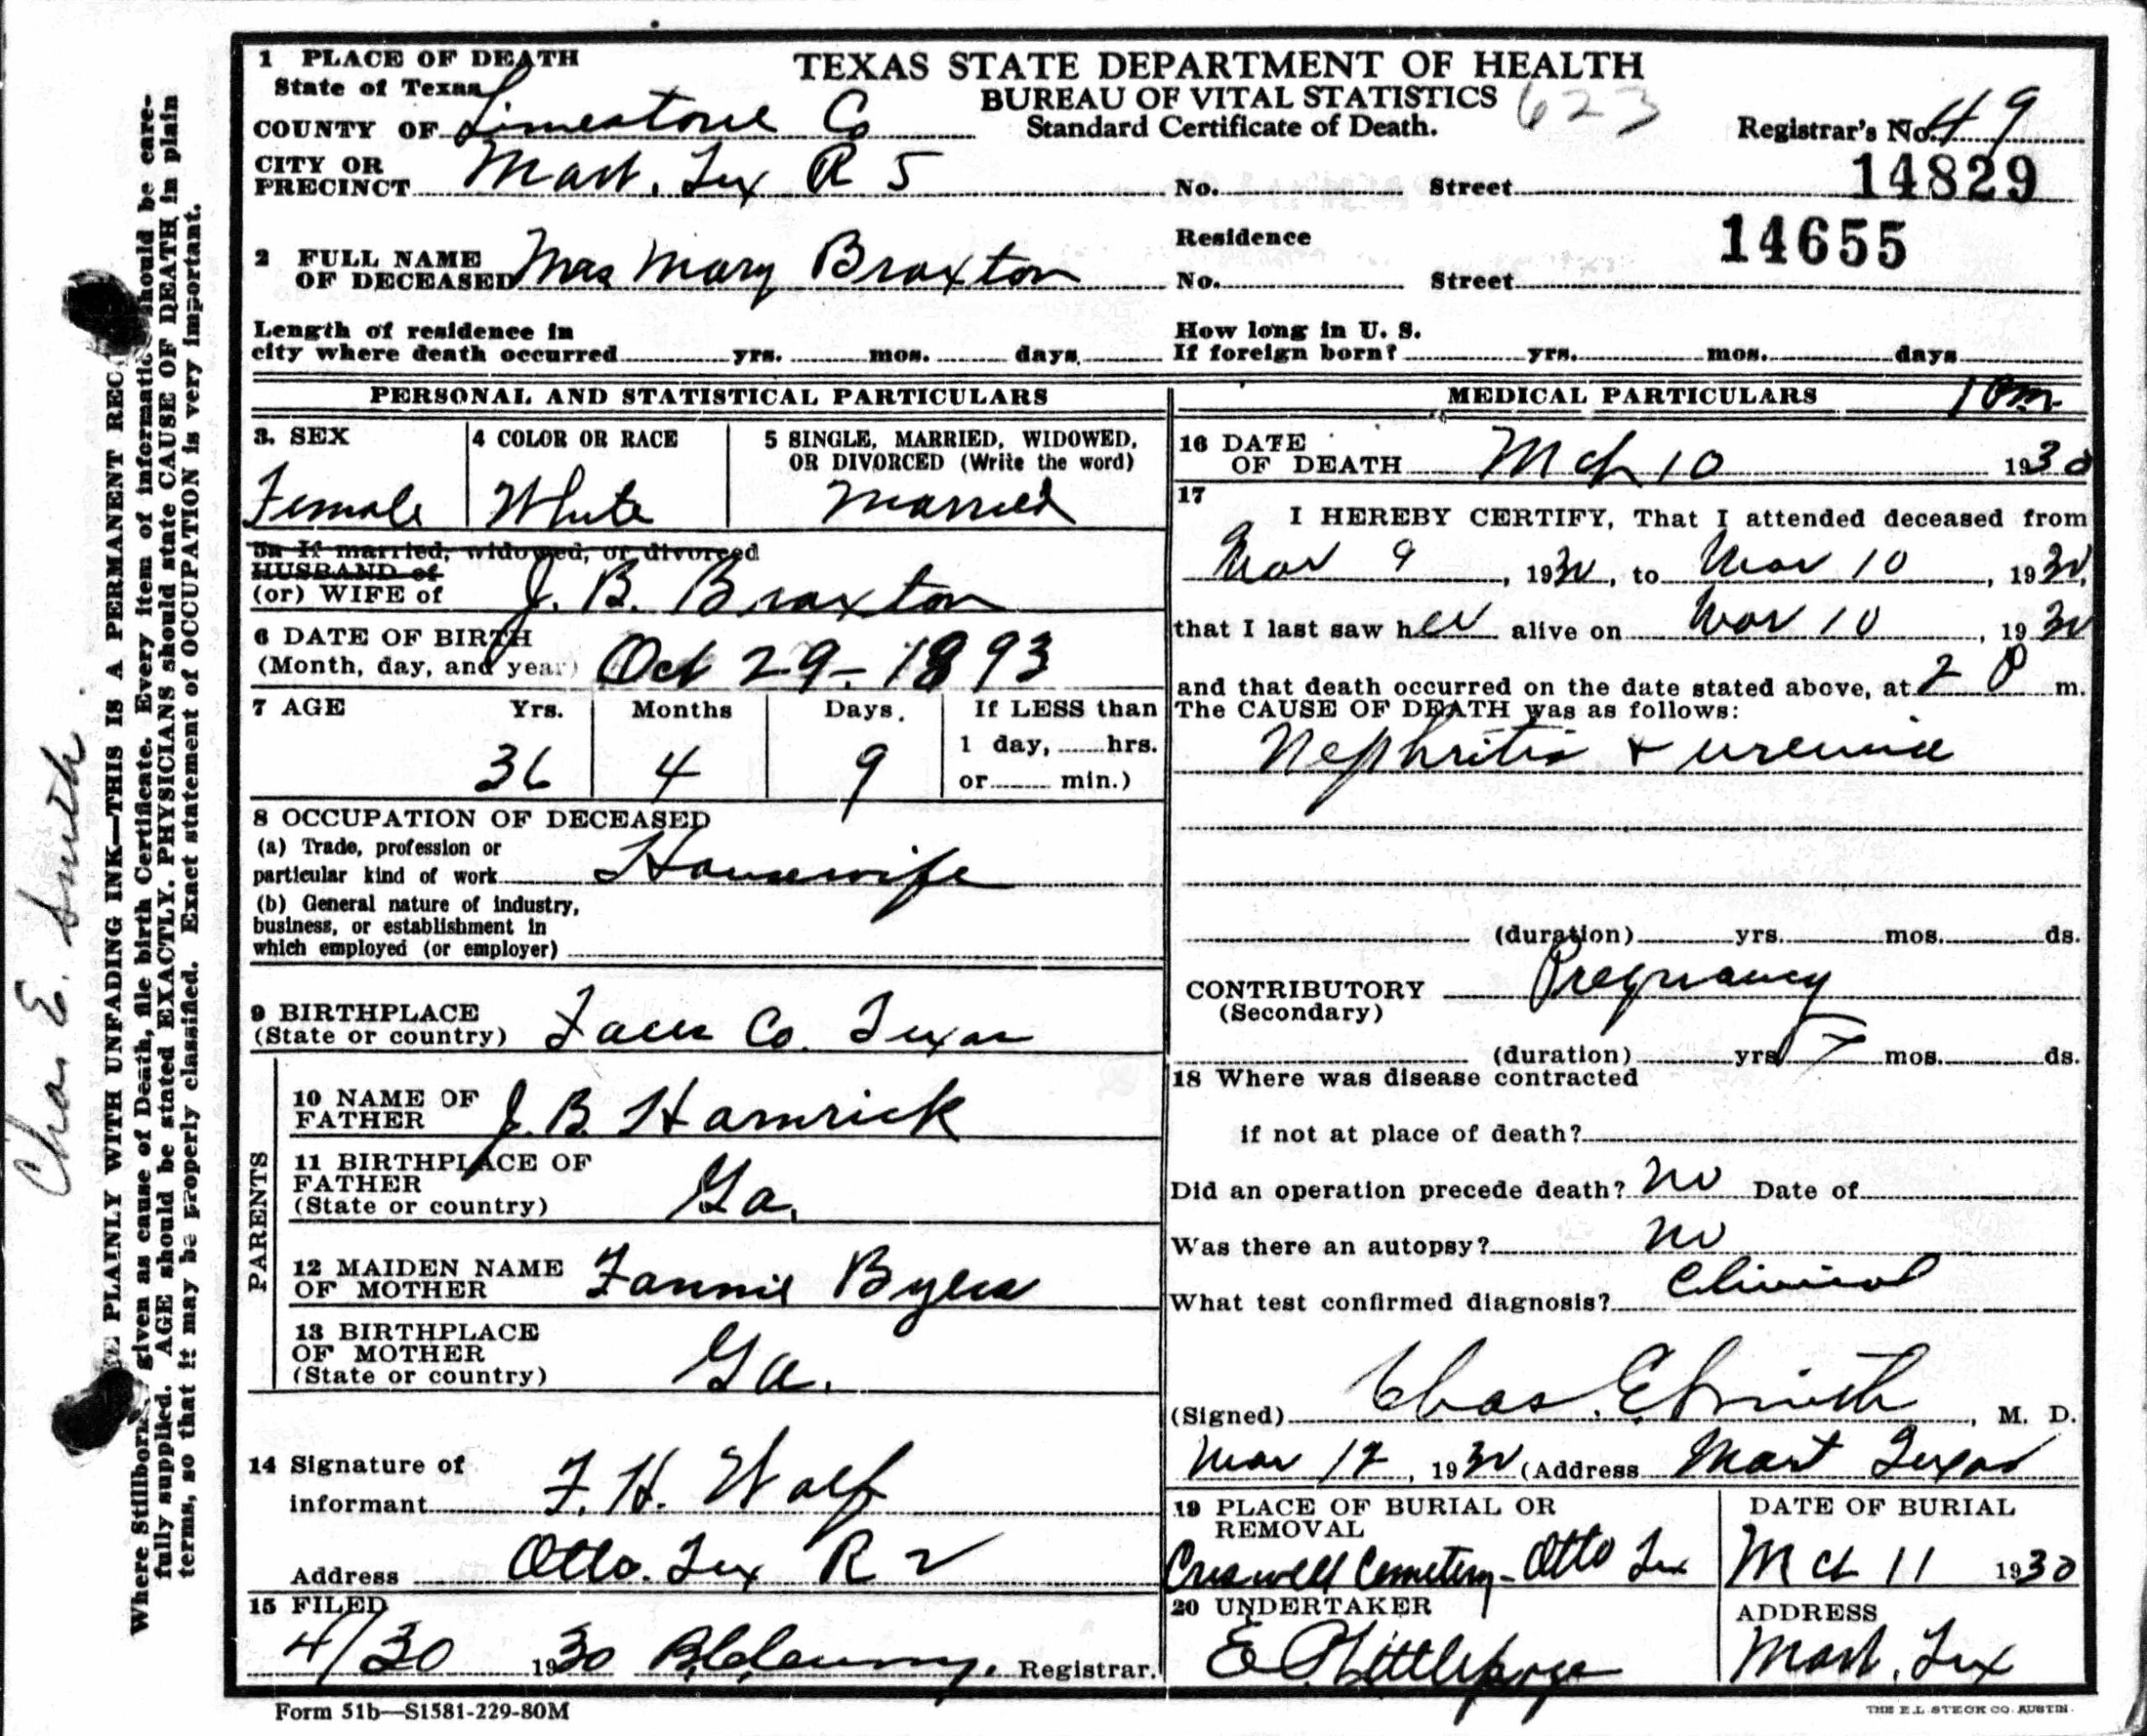 1 PLACE OF DEATH
State of Texas
TEXAS STATE DEPARTMENT OF HEALTH
BUREAU OF VITAL STATISTICS 623
Standard Certificate of Death.
COUNTY OF Limestone Co
Registrar's No. 49
CITY OR PRECINCT Mart, Tex R 5
No. Street
14829
2 FULL NAME OF DECEASED Mrs Mary Braxton
Residence
14655
No. Street
Length of residence in city where death occurred yrs. mos. days
How long in U. S. If foreign born? yrs. mos. days
PERSONAL AND STATISTICAL PARTICULARS
3. SEX
Female
4 COLOR OR RACE
White
5 SINGLE, MARRIED, WIDOWED,
OR DIVORCED (Write the word)
Married
5a If married, widowed, or divorced
HUSBAND of
(or) WIFE of J. B. Braxton
6 DATE OF BIRTH
(Month, day, and year) Oct 29 - 1893
7 AGE Yrs. Months Days. If LESS than
1 day, hrs.
36 4 9
or min.)
8 OCCUPATION OF DECEASED
(a) Trade, profession or
particular kind of work Housewife
(b) General nature of industry,
business, or establishment in
which employed (or employer)
9 BIRTHPLACE
(State or country) Falls Co. Texas
PARENTS
10 NAME OF FATHER J. B. Hamrick
11 BIRTHPLACE OF FATHER
(State or country) Ga.
12 MAIDEN NAME OF MOTHER Fannie Byers
13 BIRTHPLACE OF MOTHER
(State or country) Ga.
14 Signature of
informant F. H. Wolf
Address Otto. Tex R 2
15 FILED
4/30 1930 Registrar.
MEDICAL PARTICULARS
16 DATE
OF DEATH Mch 10 1930
17
I HEREBY CERTIFY, That I attended deceased from
Mar 9, 1930, to Mar 10, 1930,
that I last saw her alive on Mar 10, 1930
and that death occurred on the date stated above, at 2 P m.
The CAUSE OF DEATH was as follows:
Nephritis + uremia
(duration) yrs. mos. ds.
CONTRIBUTORY Pregnancy
(Secondary)
(duration) yrs 7 mos. ds.
18 Where was disease contracted
if not at place of death?
Did an operation precede death? No Date of
Was there an autopsy? No
What test confirmed diagnosis? Clinical
(Signed) Chas. E. Smith, M. D.
Mar 12, 1930 (Address Mart Texas
19 PLACE OF BURIAL OR
REMOVAL
Criswell Cemetery - Otto Tex
DATE OF BURIAL
Mch 11 1930
20 UNDERTAKER
E. C. Littlepage
ADDRESS
Mart, Tex
Form 51b—S1581-229-80M
THE E.L. STECK CO. AUSTIN.
Chas E. Smith.
PLAINLY WITH UNFADING INK—THIS IS A PERMANENT REC
Where Stillborn, given as cause of Death, file birth Certificate. Every item of information should be care-
fully supplied. AGE should be stated EXACTLY. PHYSICIANS should state CAUSE OF DEATH in plain
terms, so that it may be properly classified. Exact statement of OCCUPATION is very important.